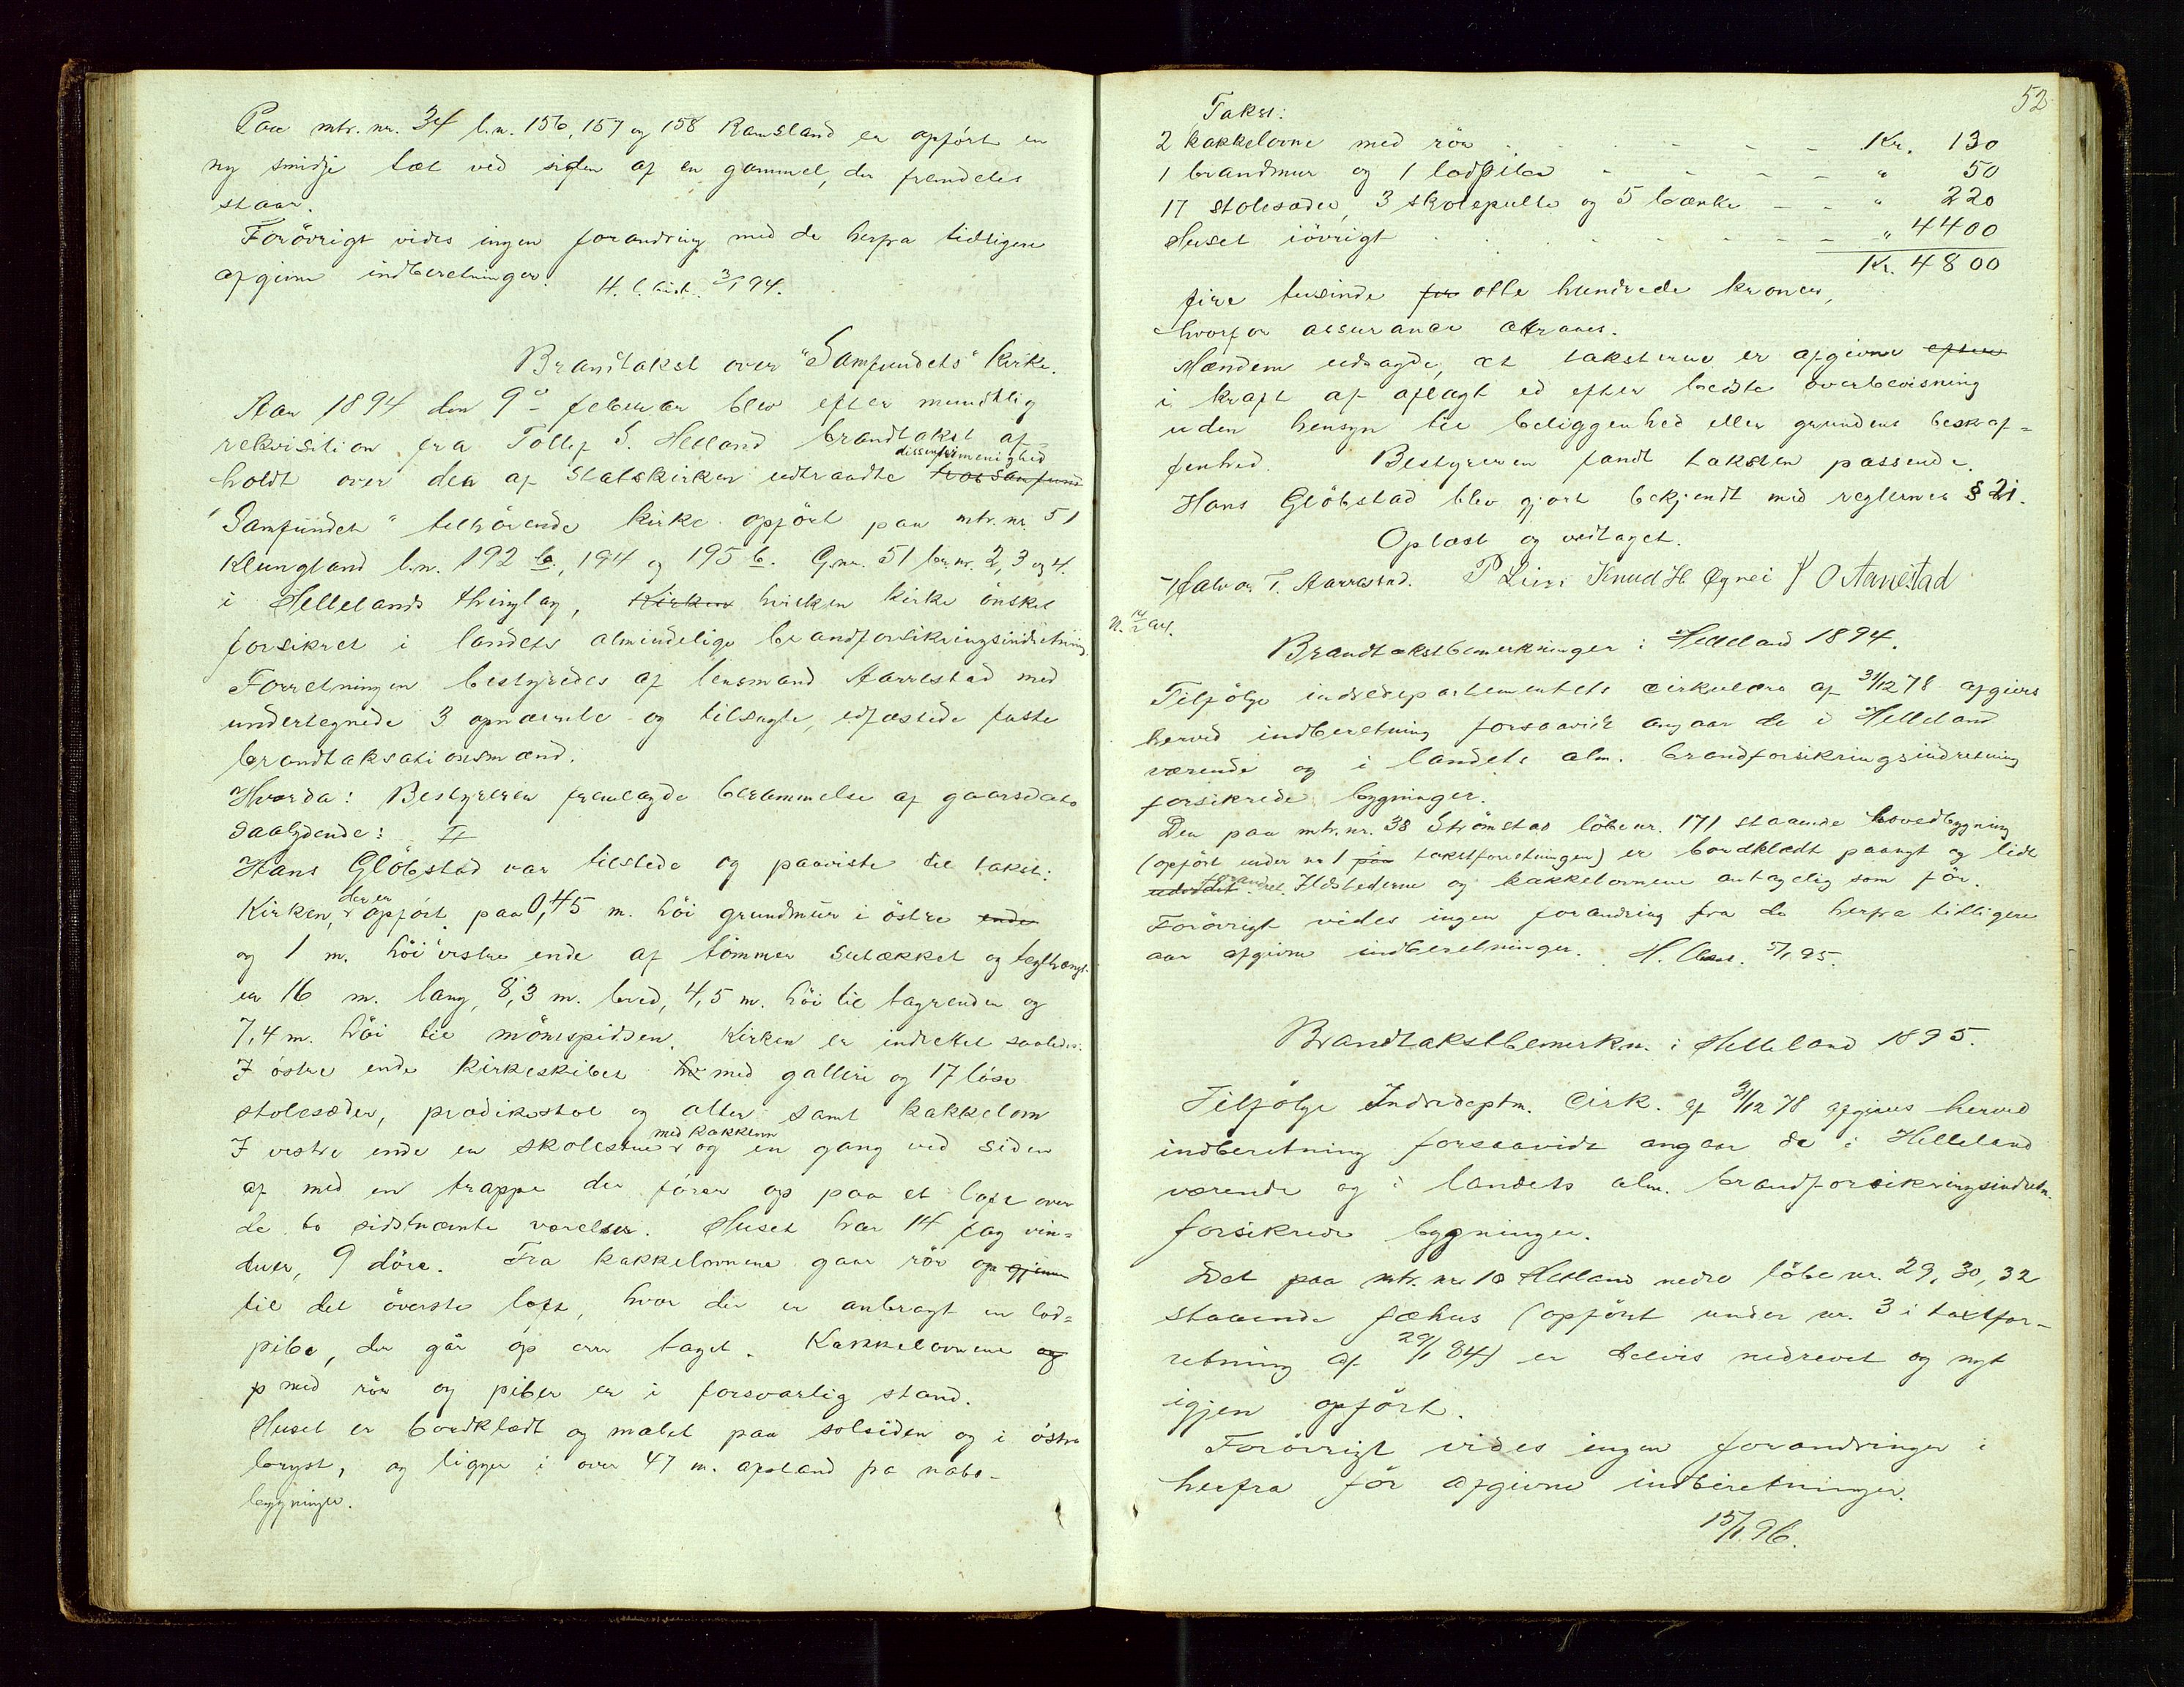 Paa mtr. nr. 34 l.n. 156, 157 og 158 Ramsland er opført en
ny smidje tæt ved siden af en gammel, der fremdeles
staar.
Forövrigt vides ingen forandring med de herfra tidligere
afgivne indberetninger. 3/1 94.
Brandtakst over "Samfundets" kirke.
Aar 1894 den 9de februar blev efter mundtlig
rekvisition fra Tollef S. Helland brandtakst af-
holdt over den af Statskirken udtraadte dissentermenighed
"Samfundet" tilhörende kirke opfört paa mtr. nr. 51
Klungland l.n. 192 b, 194 og 195 b. Gnr. 51 br.nr. 2, 3 og 4.
i Hellelands thinglag, Kirken hvilken kirke önskes
forsikret i landets almindelige brandforsikringsindretning.
Forretningen bestyredes af lensmand Aarrestad med
undertegnede 3 opnævnte og tilsagte, edfæstede faste
brandtaksationsmænd.
Hvorda: Bestyreren fremlagde berammelse af gaarsdato
saalydende:
Hans Glöbstad var tilstede og paaviste til takst:
Kirken, der er opfört paa 0,45 m. höi grundmur i östre ende
og 1 m. höi vestre ende af tömmer
er 16 m. lang, 8,3 m. bred, 4,5 m. höi til tagrenden og
7,4 m. höi til mönespidsen. Kirken er indrettet saaledes:
I östre ende kirkeskibet med galleri og 17 löse
stolesæder, prædikestol og alter samt kakkelovn
I vestre ende en skolestue med kakkelovn og en gang ved siden
af med en trappe der förer op paa et loft over
de to sidstnævnte værelser. Huset har 14 fag vin=
duer, 9 döre. Fra kakkelovnene gaar rör op gjennem
til det överste loft, hvor der er anbragt en lod=
pibe, der går op over taget. Kakkelovnene og
p med rör og piber er i forsvarlig stand.
Huset er bordklædt og malet paa solsiden og i östre
bryst, og ligger i over 47 m. afstand fra nabo-
bygninger.
52
Takst:
2 kakkelovne med rör - - - - Kr. 130
1 brandmur og 1 lodpibe - - - - " 50
17 stolesæder, 3 skolepulte og 5 bænke - - " 220
Huset iövrigt - - - - " 4400
Kr. 4800
fire tusinde fir otte hundrede kroner,
hvorfor assurance attraaes.
Mændene udsagde, at taksterne er afgivne efter
i kraft af aflagt ed efter bedste overbevisning
uden hensyn til beliggenhed eller grundens beskaf=
fenhed. Bestyreren fandt taksten passende.
Hans Glöbstad blev gjort bekjendt med reglernes § 21.
Oplæst og vedtaget.
T. Aarrestad. P Lien Knud H Ognei O Aarrestad
Brandtakstbemerkninger i Helleland 1894.
Tilfölge indredepartementets cirkulære af 31/12 78 afgives
herved indberetning forsaavidt angaar de i Helleland
værende og i landets alm. brandforsikringsindretning
forsikrede bygninger.
Den paa mtr. nr. 38 Strömstad löbenr. 171 staaende hovedbygning
(opfört under no 1 i takstforretningen) er bordklædt paanyt og lidt
udvidet forandret. Ildstederne og kakkelovnene antagelig som för.
Forövrigt vides ingen forandring fra de herfra tidligere
aar afgivne indberetninger. 5/1 95.
Brandtakstbemerkn. i Helleland 1895.
Tilfölge Indredeptm. Cirk. af 31/12 78 afgives herved
indberetning forsaavidt angaar de i Helleland
værende og i landets alm. brandforsikringsindretn.
forsikrede bygninger.
Det paa mtr. nr. 10 Hetland nedre löbenr. 29, 30, 32
staaende fæhus (opfört under nr. 3 i taxtfor-
retning af 29/1 84) er delvis nedrevet og nyt
igjen opfört.
Forövrigt vides ingen forandringer i
herfra för afgivne indberetninger.
15/1 96.